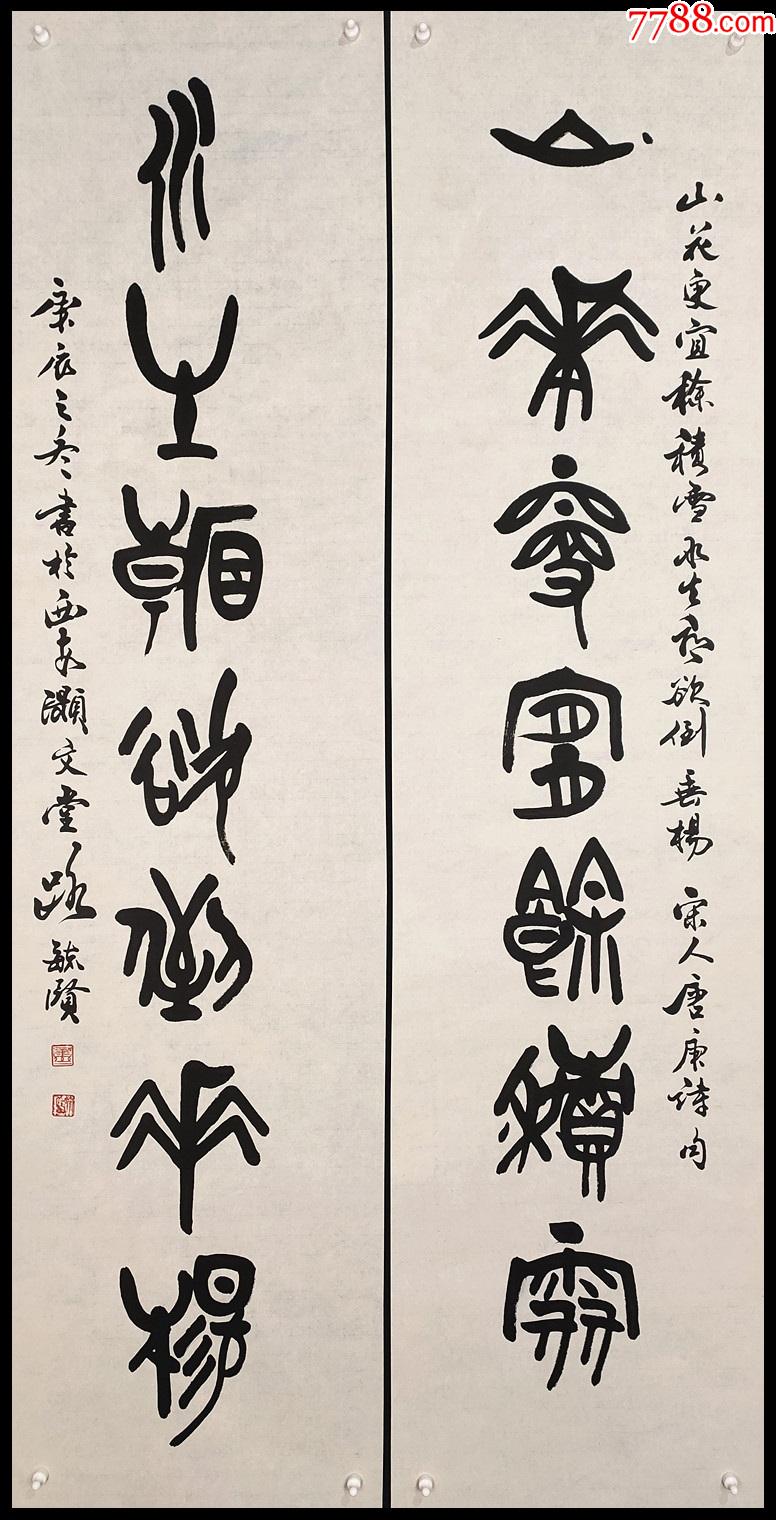 7788.com
山花更宜馀积雪
水生朝欲倒垂杨
山花更宜馀積雪水生朝欲倒垂楊 宋人唐庚詩句
庚辰之冬書於西安灝文堂路毓賢